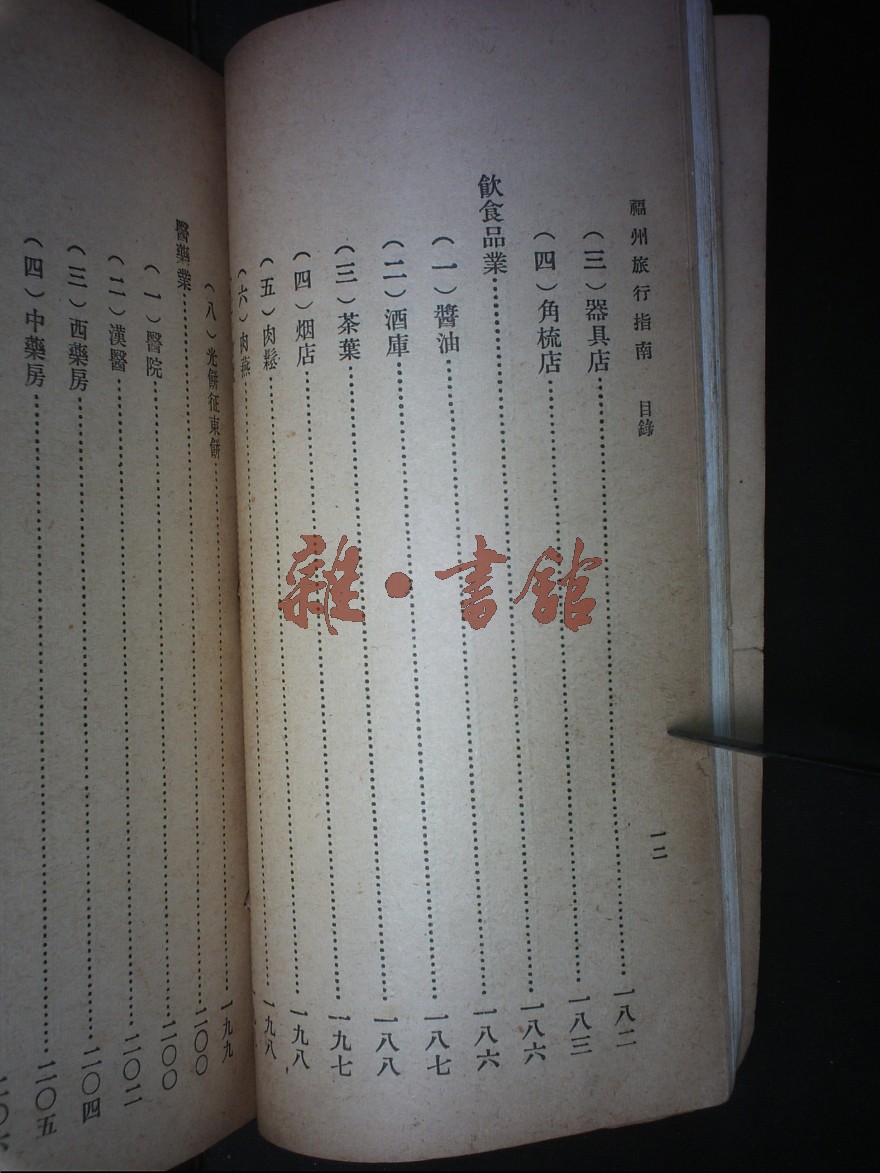 福州旅行指南 目錄 一二
(三)器具店……一八二
(四)角梳店……一八三
飲食品業……一八六
(一)醬油……一八六
(二)酒庫……一八七
(三)茶葉……一八八
(四)烟店……一九七
(五)肉鬆……一九八
(六)肉燕……一九八
(八)光餅征東餅……一九九
醫藥業……二〇〇
(一)醫院……二〇〇
(二)漢醫……二〇二
(三)西藥房……二〇四
(四)中藥房……二〇五
雜·書館